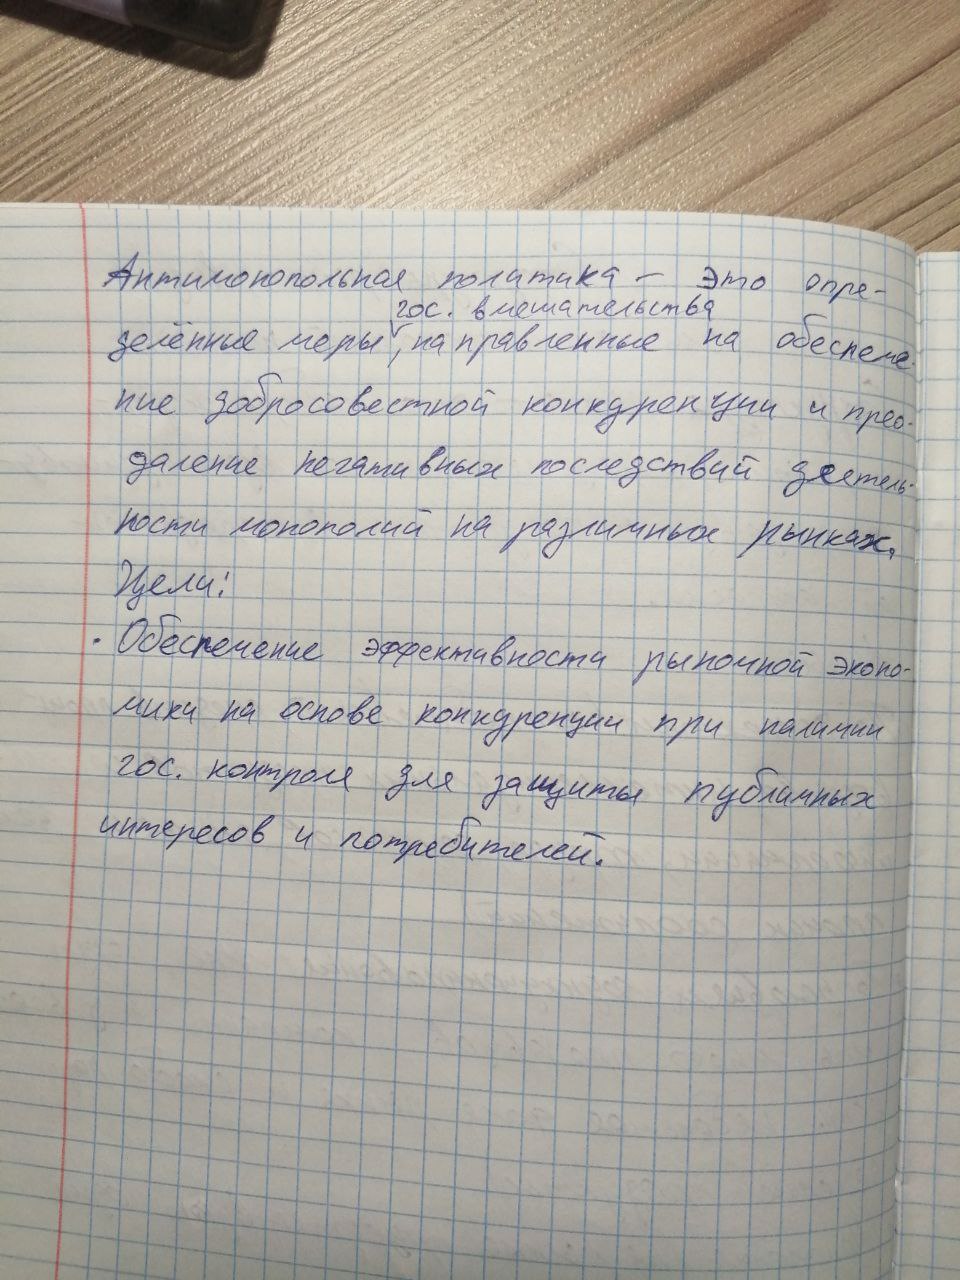 Антимонопольная политика – это опре-
гос. вмешательства
делённые меры, направленные на обеспече-
ние добросовестной конкуренции и прео-
даление негативных последствий деятель-
ности монополий на различных рынках.
Цели:
· Обеспечение эффективности рыночной эконо-
мики на основе конкуренции при наличии
гос. контроля для защиты публичных
интересов и потребителей.